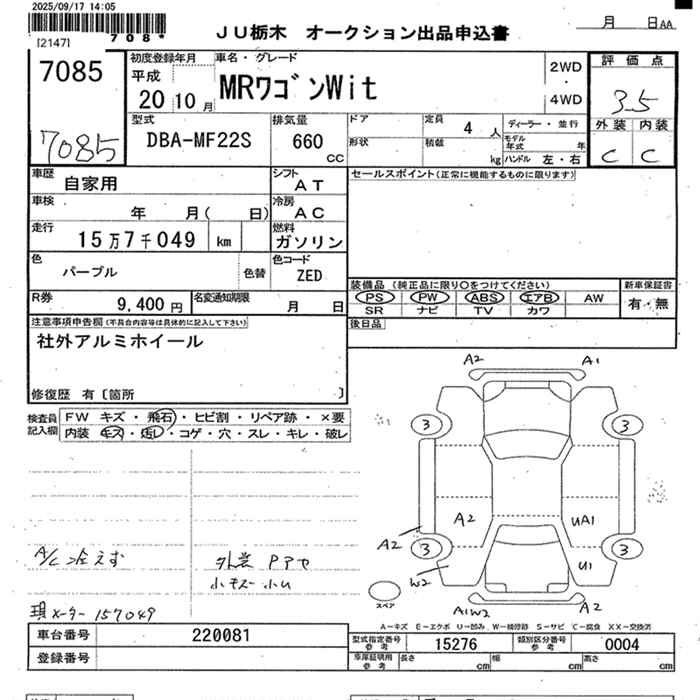 2025/09/17 14:05
[2147] 708*
JU栃木 オークション出品申込書
月 日AA
7085
7085
初度登録年月
平成
20 10 月
車名・グレード
MRワゴンWit
2WD
・
4WD
評価点
3.5
外装 内装
C C
型式
DBA-MF22S
排気量
660
CC
ドア
形状
定員 4 人
積載 kg
ディーラー・並行
モデル年式 年
ハンドル 左・右
車歴
自家用
シフト
AT
セールスポイント(正常に機能するものに限ります)
車検
年 月( 日)
冷房
AC
走行
15万7千049 km
燃料
ガソリン
色
パープル
色替
色コード
ZED
装備品 (純正品に限り○をつけてください)
新車保証書
PS PW ABS エアB AW
有・無
SR ナビ TV カワ
R券
9,400 円
名変通知期限
月 日
後日品
注意事項申告欄(不具合内容等は具体的に記入して下さい)
社外アルミホイール
修復歴 有〔箇所 〕
検査員記入欄
FW キズ・飛石・ヒビ割・リペア跡・×要
内装 キズ・汚レ・コゲ・穴・スレ・キレ・破レ
A2 A1
3 3
A2 UA1
A2
3 3
W2 U1
スペア
A1W2 A2
A/C冷えず
外装 Pアセ
小キズ 小U
現メーター 157049
A−キズ E−エクボ U−凹み W−補修跡 S−サビ C−腐食 XX−交換済
車台番号 220081
登録番号
型式指定番号 参考 15276
類別区分番号 参考 0004
車庫証明用 参考 長さ cm 幅 cm 高さ cm